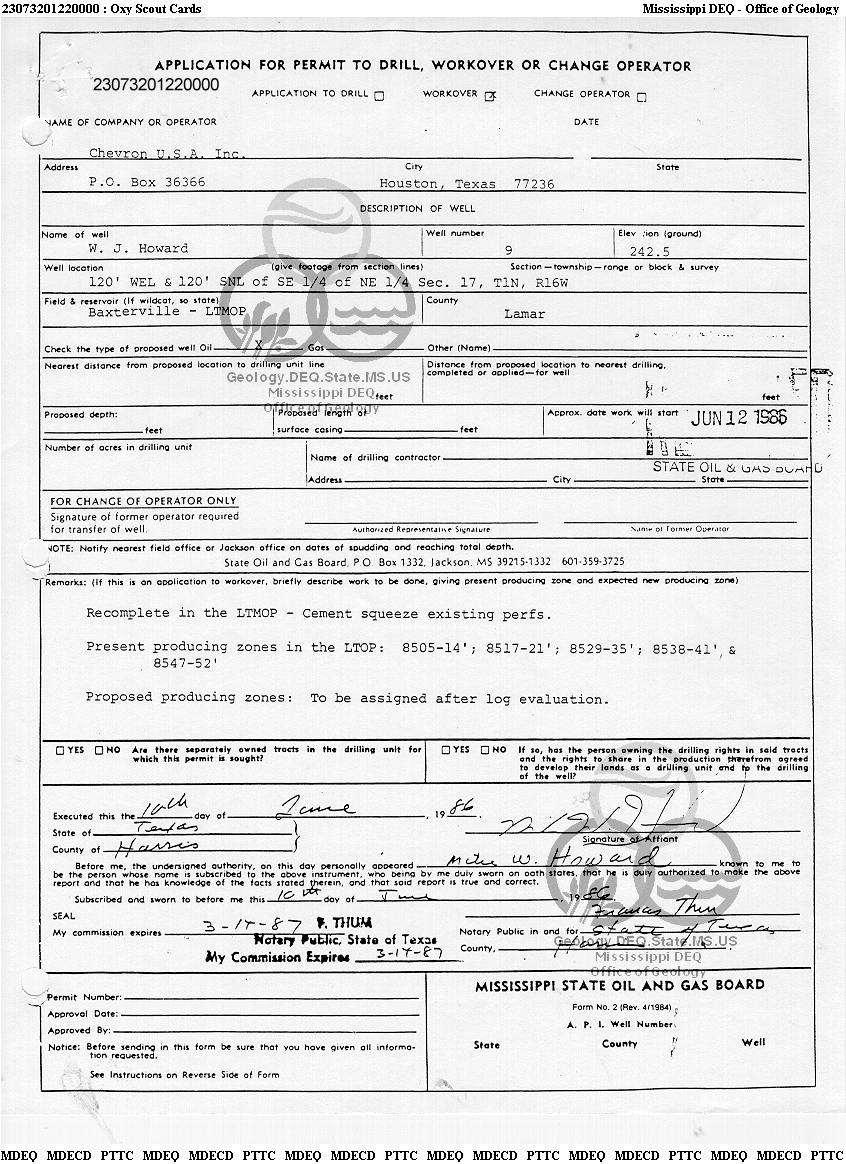 23073201220000 : Oxy Scout Cards
Mississippi DEQ - Office of Geology
APPLICATION FOR PERMIT TO DRILL, WORKOVER OR CHANGE OPERATOR
23073201220000
APPLICATION TO DRILL WORKOVER X CHANGE OPERATOR
NAME OF COMPANY OR OPERATOR DATE
Chevron U.S.A. Inc.
Address City State
P.O. Box 36366 Houston, Texas 77236
DESCRIPTION OF WELL
Name of well Well number Elev tion (ground)
W. J. Howard 9 242.5
Well location (give footage from section lines) Section—township—range or block & survey
120' WEL & 120' SNL of SE 1/4 of NE 1/4 Sec. 17, T1N, R16W
Field & reservoir (If wildcat, so state) County
Baxterville - LTMOP Lamar
Check the type of proposed well Oil X Gas Other (Name)
Nearest distance from proposed location to drilling unit line Distance from proposed location to nearest drilling,
completed or applied—for well
Geology.DEQ.State.MS.US
Mississippi DEQ
feet feet
Office of Geology
Proposed depth: Proposed length of Approx. date work will start JUN 12 1986
feet surface casing feet
Number of acres in drilling unit
Name of drilling contractor
STATE OIL & GAS BOARD
Address City State
FOR CHANGE OF OPERATOR ONLY
Signature of former operator required
for transfer of well. Authorized Representative Signature Name of Former Operator
NOTE: Notify nearest field office or Jackson office on dates of spudding and reaching total depth.
State Oil and Gas Board, P.O. Box 1332, Jackson, MS 39215-1332 601-359-3725
Remarks: (If this is an application to workover, briefly describe work to be done, giving present producing zone and expected new producing zone)
Recomplete in the LTMOP - Cement squeeze existing perfs.
Present producing zones in the LTOP: 8505-14'; 8517-21'; 8529-35'; 8538-41', &
8547-52'
Proposed producing zones: To be assigned after log evaluation.
YES NO Are there separately owned tracts in the drilling unit for
which this permit is sought?
YES NO If so, has the person owning the drilling rights in said tracts
and the rights to share in the production therefrom agreed
to develop their lands as a drilling unit and to the drilling
of the well?
Executed this the 10th day of June, 1986
State of Texas
Signature of Affiant
County of Harris
Before me, the undersigned authority, on this day personally appeared Mike W. Howard known to me to
be the person whose name is subscribed to the above instrument, who being by me duly sworn on oath states, that he is duly authorized to make the above
report and that he has knowledge of the facts stated therein, and that said report is true and correct.
Subscribed and sworn to before me this 10th day of June, 1986
SEAL Frances Thum
My commission expires 3-14-87 F. THUM Notary Public in and for State of Texas
Notary Public, State of Texas
Geology.DEQ.State.MS.US
County, Harris
My Commission Expires 3-14-87
Mississippi DEQ
Office of Geology
Permit Number:
Approval Date:
Approved By:
Notice: Before sending in this form be sure that you have given all informa-
tion requested.
See Instructions on Reverse Side of Form
MISSISSIPPI STATE OIL AND GAS BOARD
Form No. 2 (Rev. 4/1984)
A. P. I. Well Number
State County Well
MDEQ MDECD PTTC MDEQ MDECD PTTC MDEQ MDECD PTTC MDEQ MDECD PTTC MDEQ MDECD PTTC MDEQ MDECD PTTC